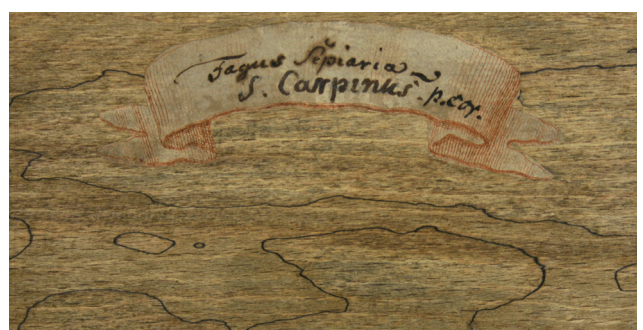 Fagus Sepiaria
S. Carpinus. p. cor.